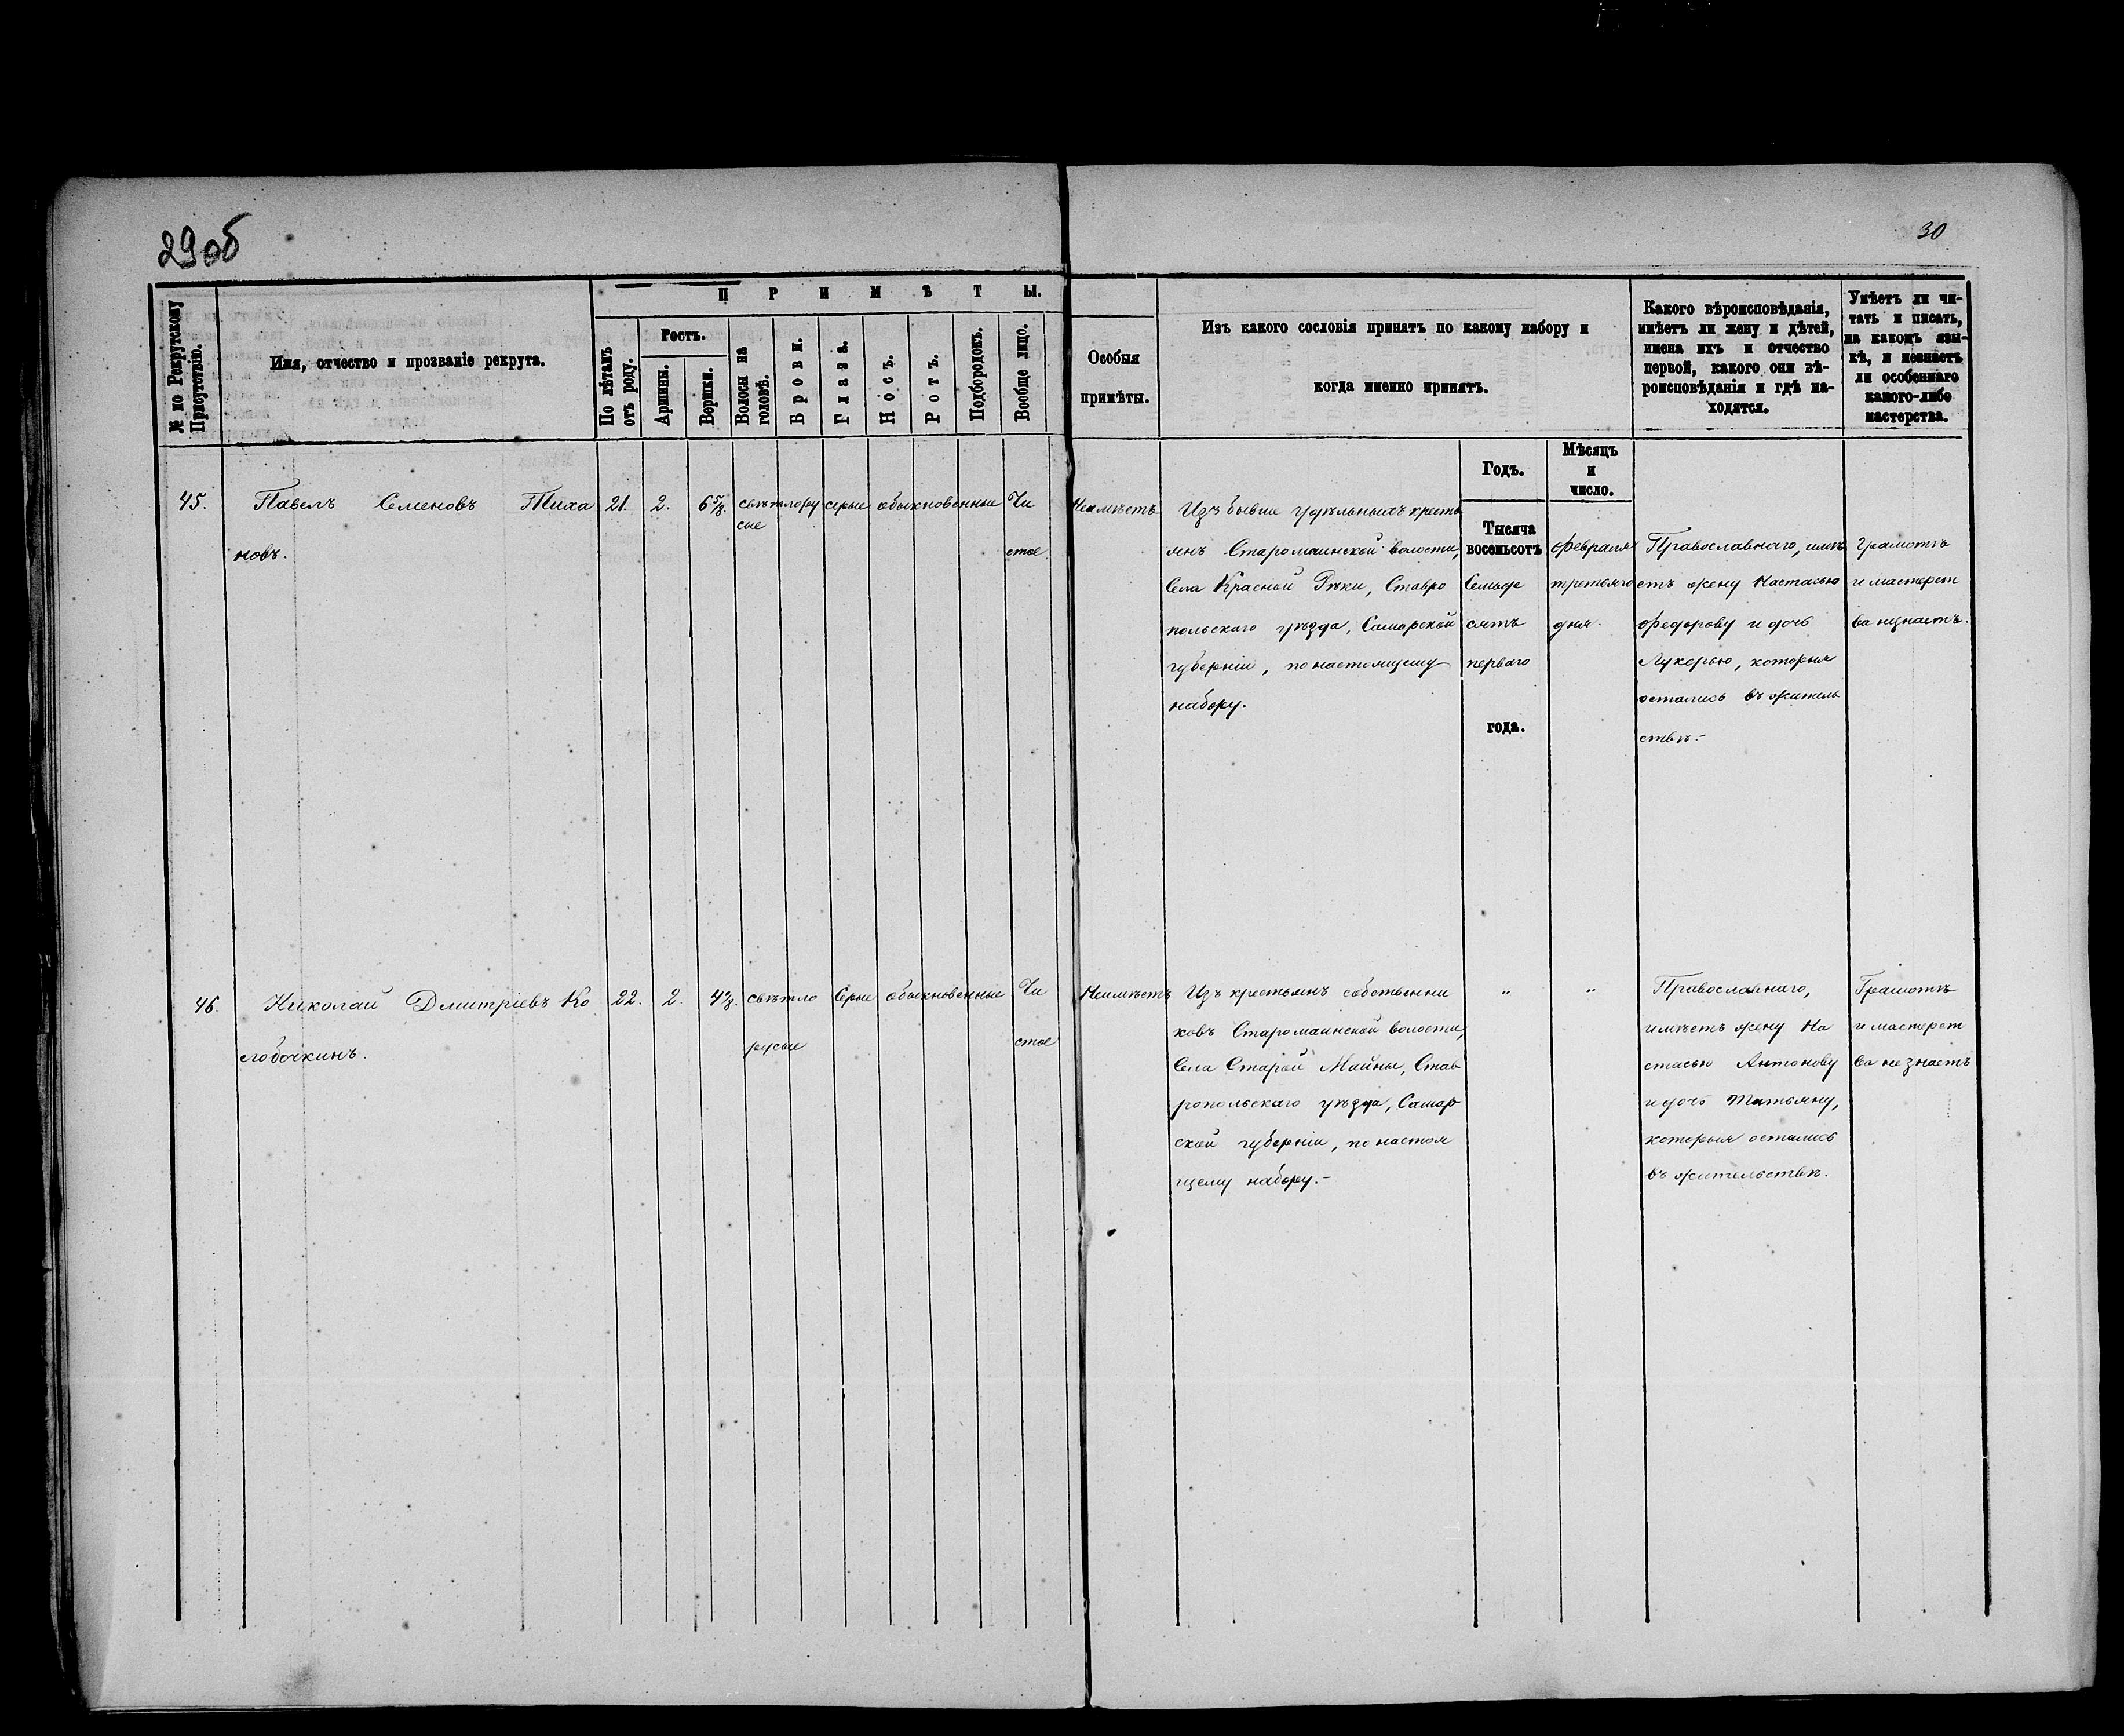 29 об
30
№ по Рекрутскому Присутствію.
Имя, отчество и прозваніе рекрута.
ПРИМѢТЫ.
По лѣтамъ отъ роду.
Ростъ.
Аршины.
Вершки.
Волосы на головѣ.
Брови.
Глаза.
Носъ.
Ротъ.
Подбородокъ.
Вообще лицо.
Особыя
примѣты.
Изъ какого сословія принятъ по какому набору и
когда именно принятъ.
Какого вѣроисповѣданія,
имѣетъ ли жену и дѣтей,
имена ихъ и отчество
первой, какого они вѣ-
роисповѣданія и гдѣ на-
ходятся.
Умѣетъ ли чи-
тать и писать,
на какомъ язы-
кѣ, и незнаетъ
ли особеннаго
какого-либо
мастерства.
Годъ.
Мѣсяцъ
и
число.
45.
Павелъ Семеновъ Тиха
новъ.
21.
2.
6 5/8.
свѣтлору
сые
серые
обыкновенные
Чи
стое
Неимѣетъ
Изъ бывши удѣльныхъ кресть
янъ Старомаинской волости,
Села Красной Рѣки, Ставро
польскаго уѣзда, Самарской
губерніи, по настоящему
набору.
Тысяча
восемьсотъ
Семьде
сятъ
перваго
года.
Февраля
третьяго
дня.
Православнаго, имѣ
етъ жену Настасью
Федорову и дочь
Лукерью, которыя
остались въ житель
ствѣ.-
Грамотѣ
и мастерст
ва незнаетъ.
46.
Николай Дмитріевъ Ко
слобочкинъ.
22.
2.
свѣтло
русые
Серые
обыкновенные
Чи
стое
Неимѣетъ
Изъ крестьянъ собственни
ковъ Старомаинской волости,
Села Старой Майны, Став
ропольскаго уѣзда, Самар
ской губерніи, по настоя
щему набору.-
"
"
Православнаго,
имѣетъ жену На
стасью Антонову
и дочь Татьяну,
которыя остались
въ жительствѣ.
Грамотѣ
и мастерст
ва не знаетъ